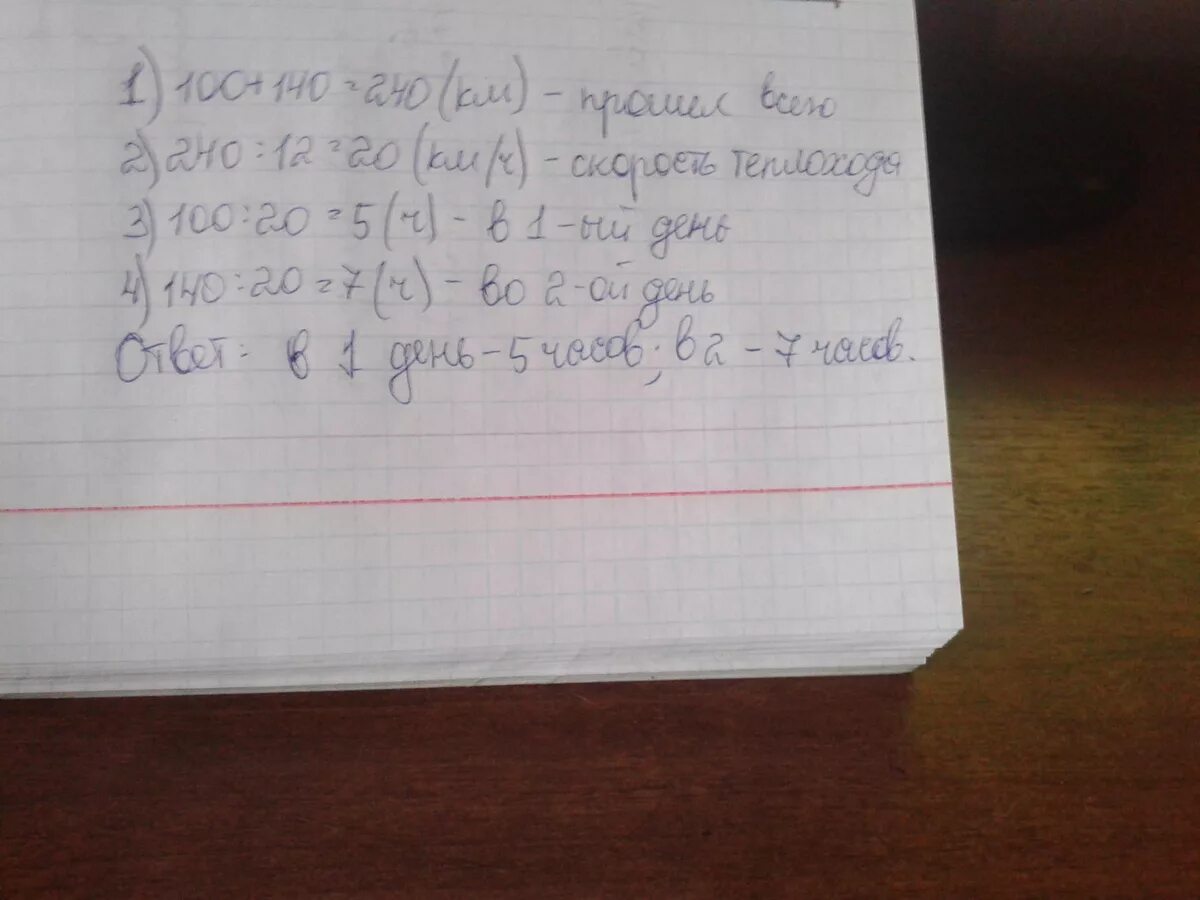 1) 100+140=240(км) - прошел всего
2) 240:12=20(км/ч) - скорость теплохода
3) 100:20=5(ч) - в 1-ый день
4) 140:20=7(ч) - во 2-ой день
Ответ: в 1 день - 5 часов; в 2 - 7 часов.